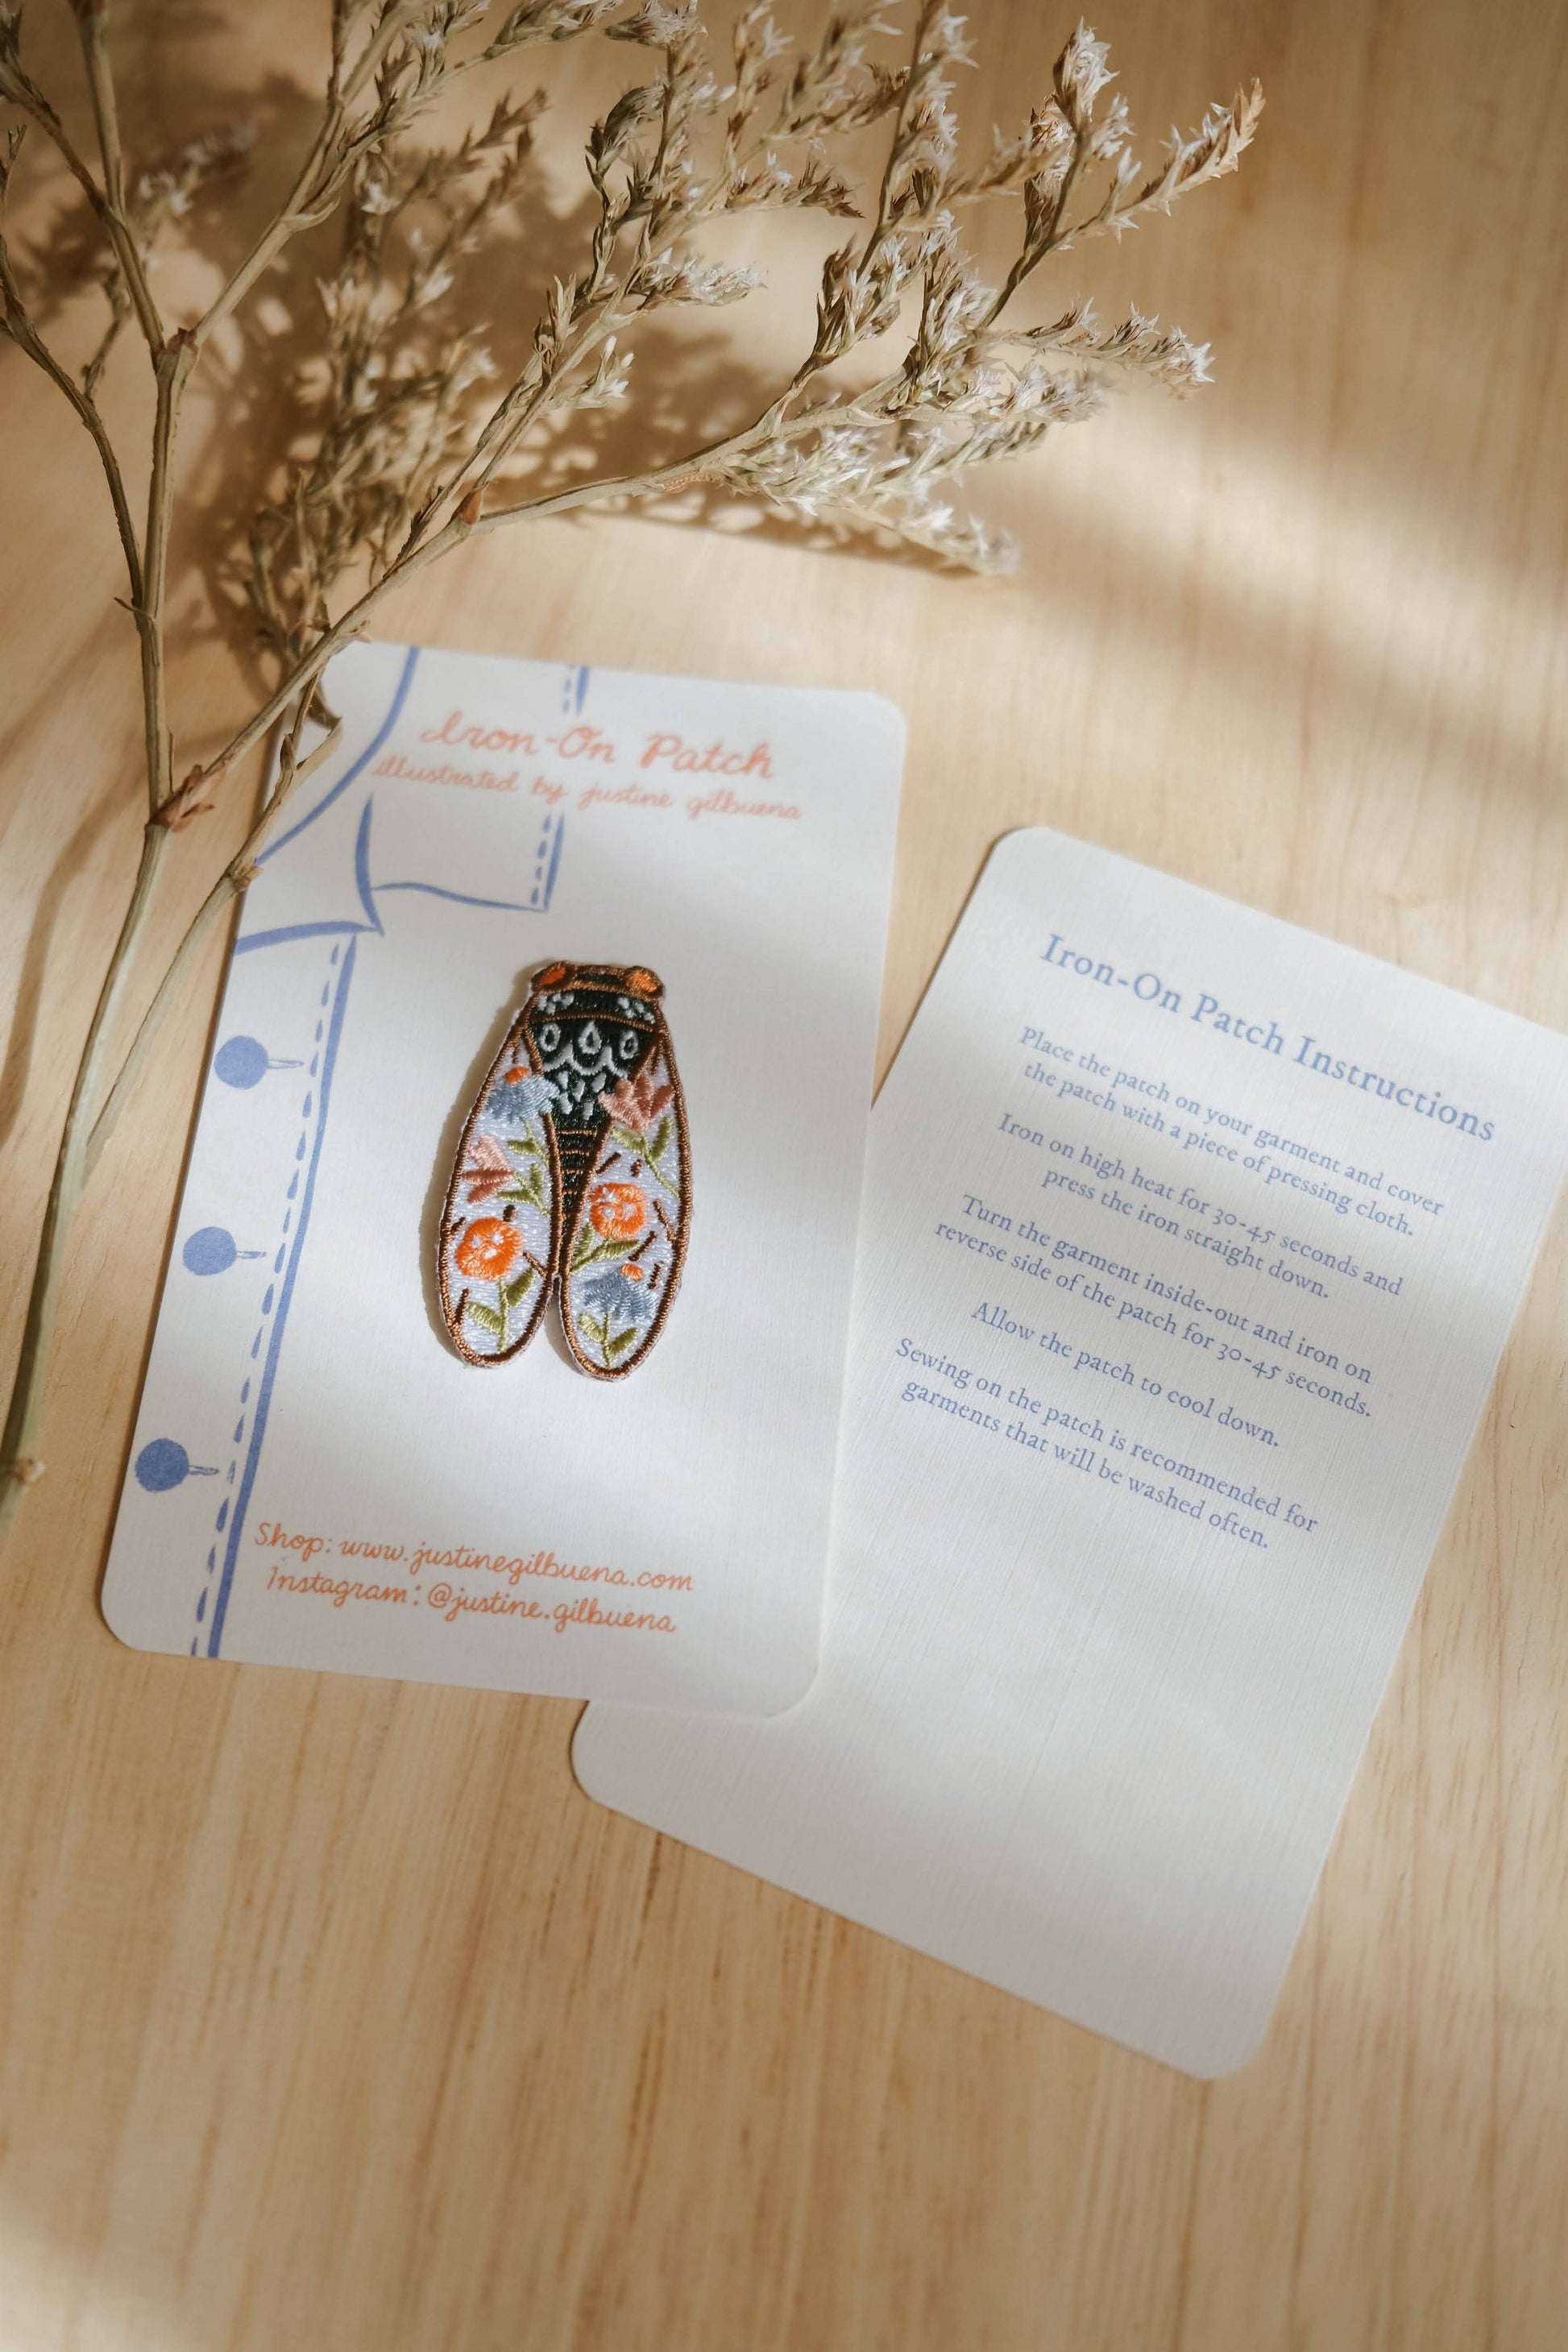 Iron-On Patch
illustrated by justine gilbuena
Shop: www.justinegilbuena.com
Instagram: @justine.gilbuena
Iron-On Patch Instructions
Place the patch on your garment and cover
the patch with a piece of pressing cloth.
Iron on high heat for 30-45 seconds and
press the iron straight down.
Turn the garment inside-out and iron on
reverse side of the patch for 30-45 seconds.
Allow the patch to cool down.
Sewing on the patch is recommended for
garments that will be washed often.